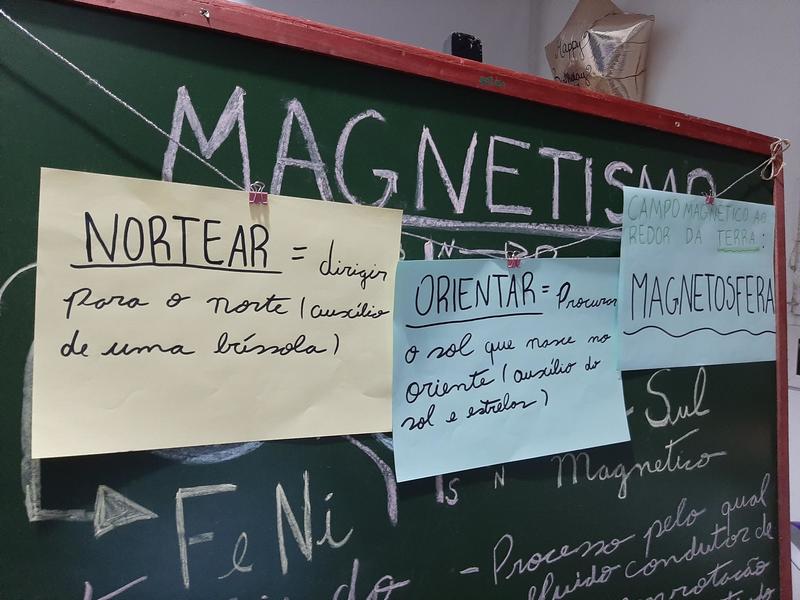 Happy
MAGNETISMO
NORTEAR = dirigir
para o norte (auxílio
de uma bússola)
ORIENTAR = Procurar
o sol que nasce no
oriente (auxílio do
sol e estrelas)
CAMPO MAGNÉTICO AO
REDOR DA TERRA:
MAGNETOSFERA
Sul
Magnetico
S N
Fe Ni
- Processo pelo qual
fluido condutor de
rotação
do